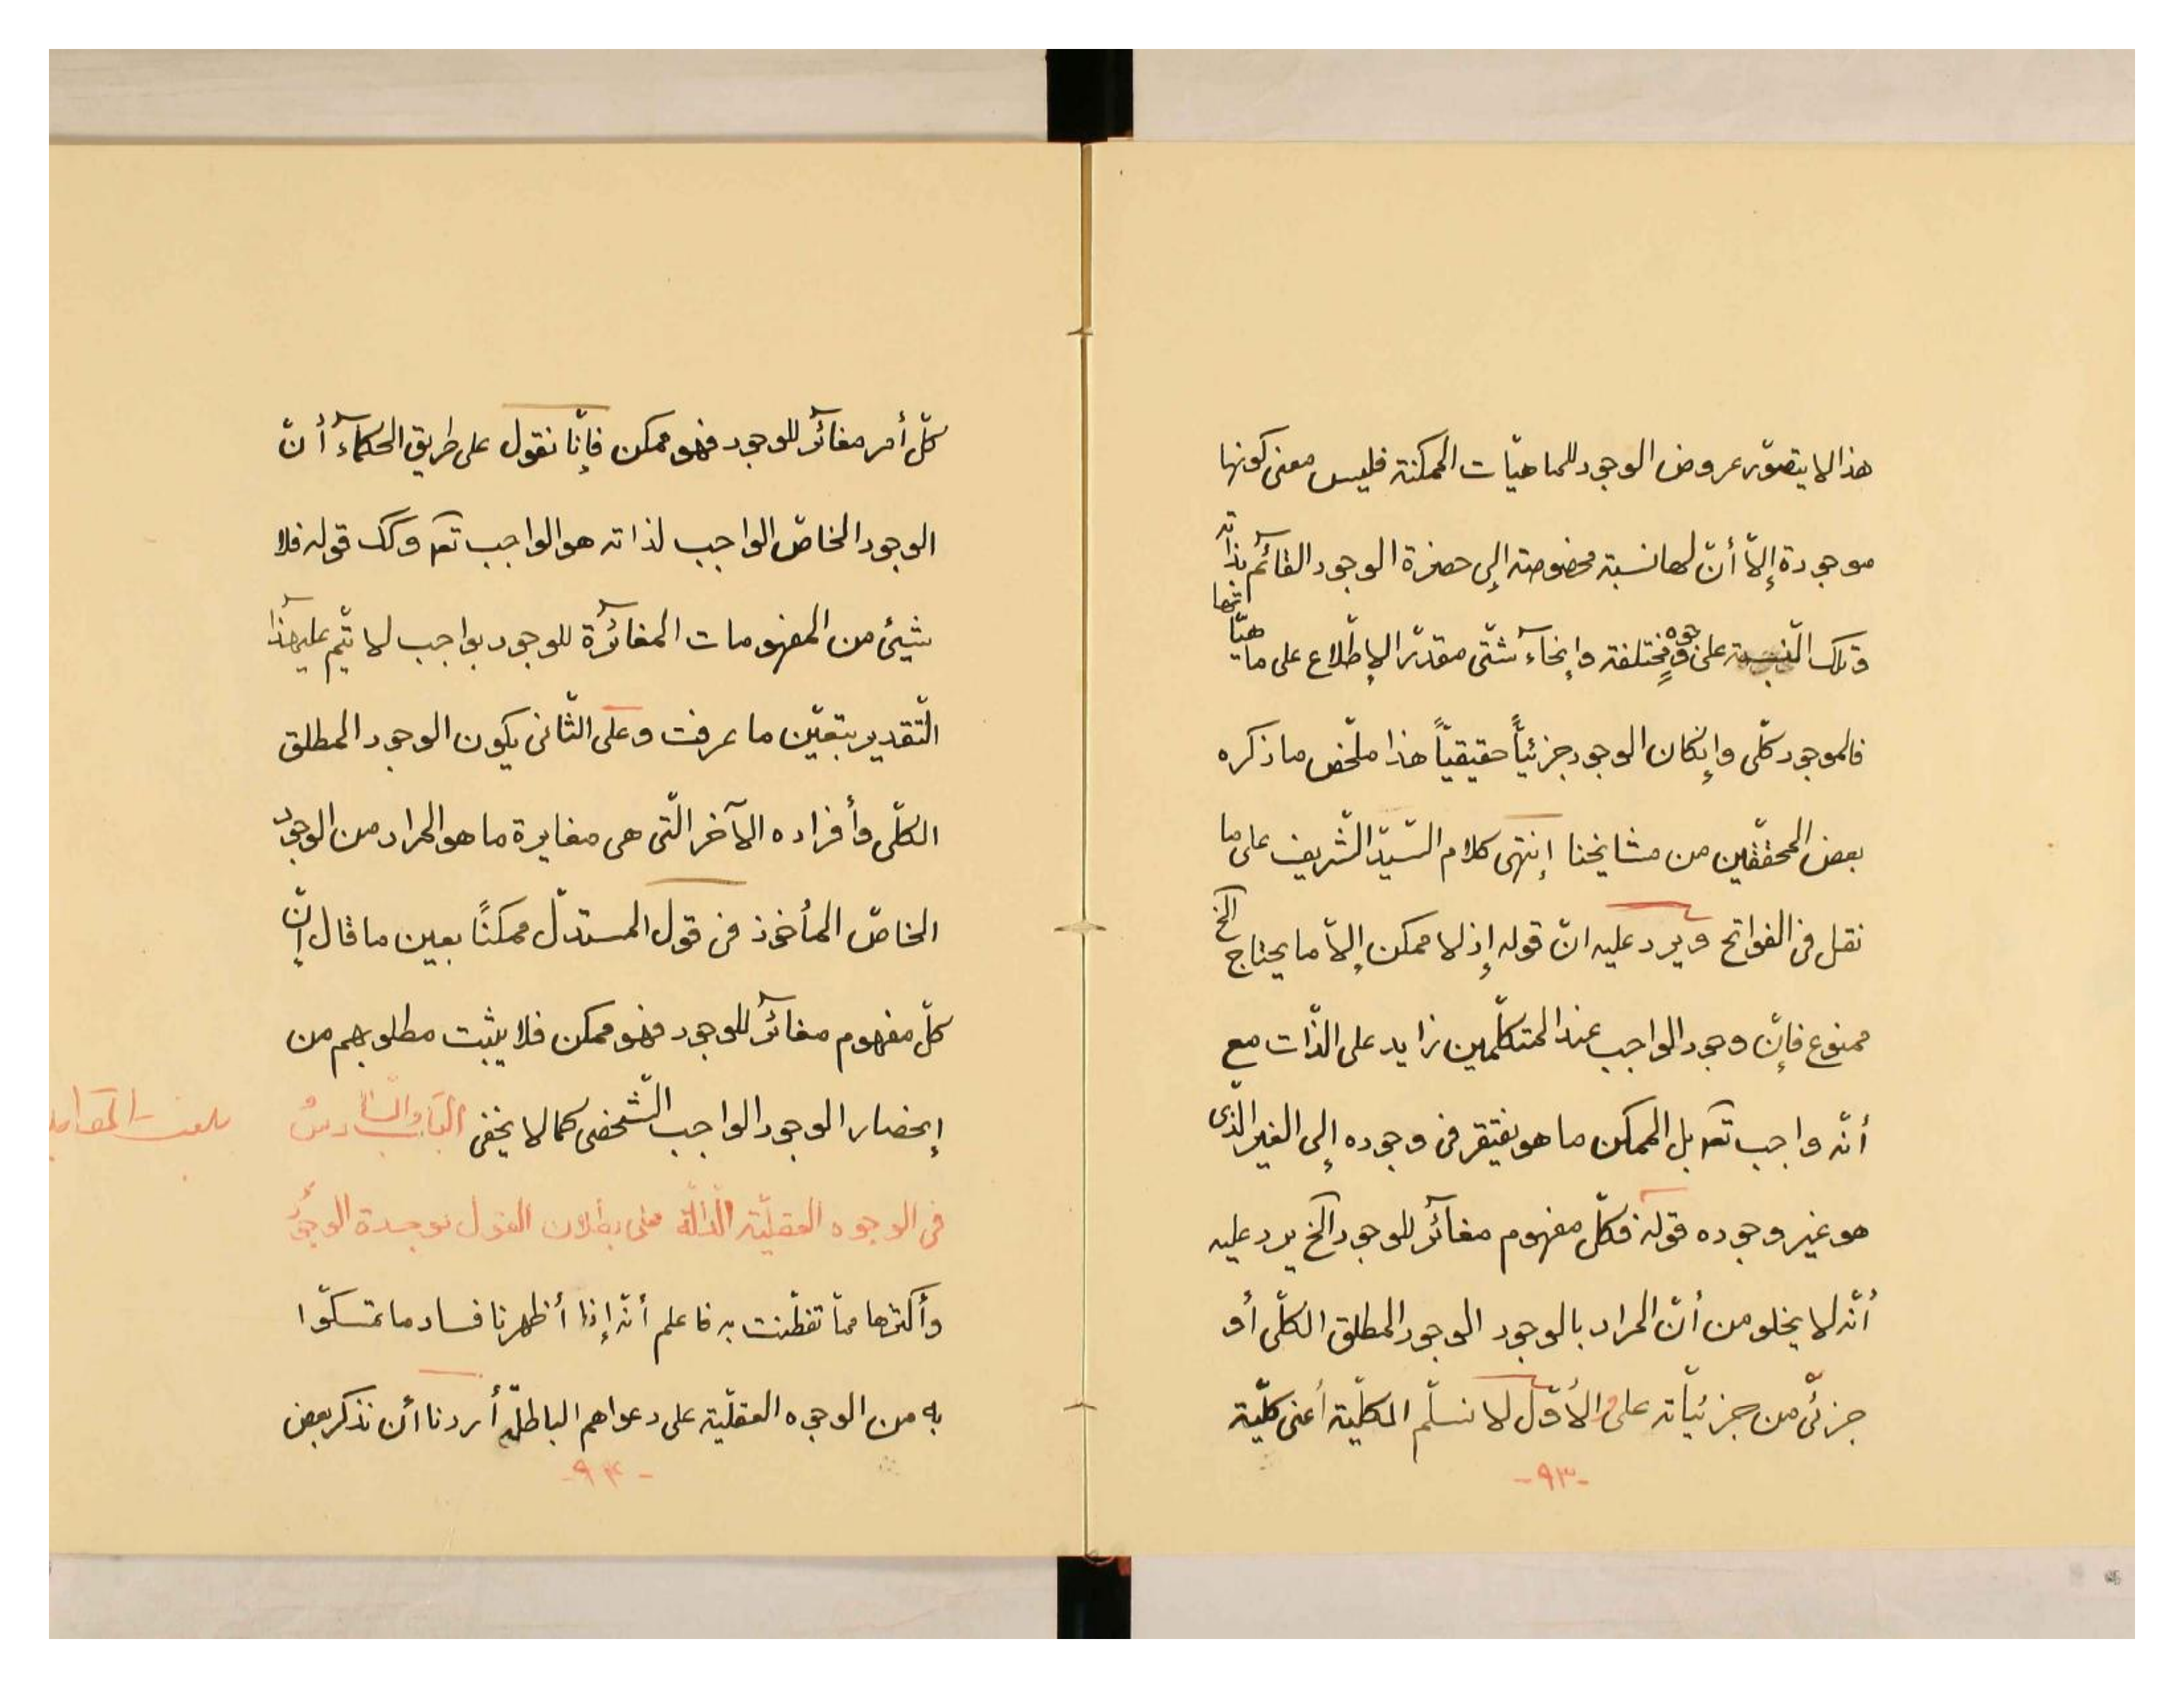 هذا لا يتصوّر عروض الوجود للماهيّات الممكنة فليس معنى كونها
موجودة إلاّ أنّ لها نسبة مخصوصة إلى حضرة الوجود القائم بذاته
وتلك النسبة على وجوه مختلفة وإنحاء شتّى مقدّر الإطّلاع على ماهيّاتها
فالموجود كلّى وإنكان الوجود جزئيّاً حقيقيّاً هذا ملخّص ما ذكره
بعض المحقّقين من مشايخنا إنتهى كلام السّيّد الشّريف على ما
نقل فى الفواتح ويرد عليه انّ قوله إذ لا ممكن إلاّ ما يحتاج الخ
ممنوع فإنّ وجود الواجب عند المتكلّمين زايد على الذّات مع
أنّه واجب تعـ بل الممكن ما هو يفتقر فى وجوده إلى الغير الّذى
هو غير وجوده قوله فكلّ مفهوم مغآئر للوجود الخ يرد عليه
أنّه لا يخلو من أنّ المراد بالوجود الوجود المطلق الكلّى أو
جزئى من جزئيّاته على الأوّل لا نسلّم الكلّية أعنى كلّية
-٩٣-
كلّ أمر مغآئر للوجود فهو ممكن فإنّا نقول على طريق الحكمآء أنّ
الوجود الخاصّ الواجب لذاته هو الواجب تعـ وكك قوله فلا
شيئ من المفهومات المغآئرة للوجود بواجب لا يتّم على هذا
التّقدير بتعيّن ما عرفت وعلى الثّانى يكون الوجود المطلق
الكلّى وأفراده الآخر الّتى هى مغايرة ما هو المراد من الوجود
الخاصّ المأخوذ فى قول المستدلّ ممكنًا بعين ما قال إنّ
كلّ مفهوم مغآئر للوجود فهو ممكن فلا يثبت مطلوبهم من
إنحصار الوجود الواجب الشّخصى كما لا يخفى الباب السّادس
فى الوجوه العقليّة الدّالّة على بطلان القول بوحدة الوجود
وأكثرها ممّا تفطّنت به فاعلم أنّه إذا أظهرنا فساد ما تمسّكوا
به من الوجوه العقليّة على دعواهم الباطلة أردنا أن نذكر بعض
-٩٤-